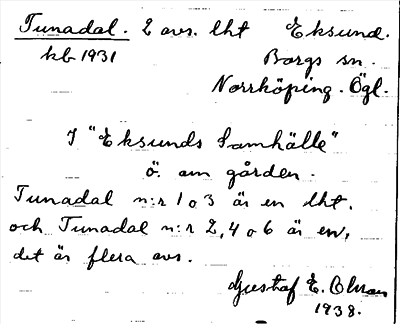 Tunadal. 2 avs. lht Eksund.
kb 1931 Borgs sn.
Norrköping. Ögl.
I "Eksunds Samhälle"
ö. om gården.
Tunadal n:r 1 o 3 är en lht.
och Tunadal n:r 2, 4 o 6 är en,
det är flera avs.
Gustaf E.
1938.